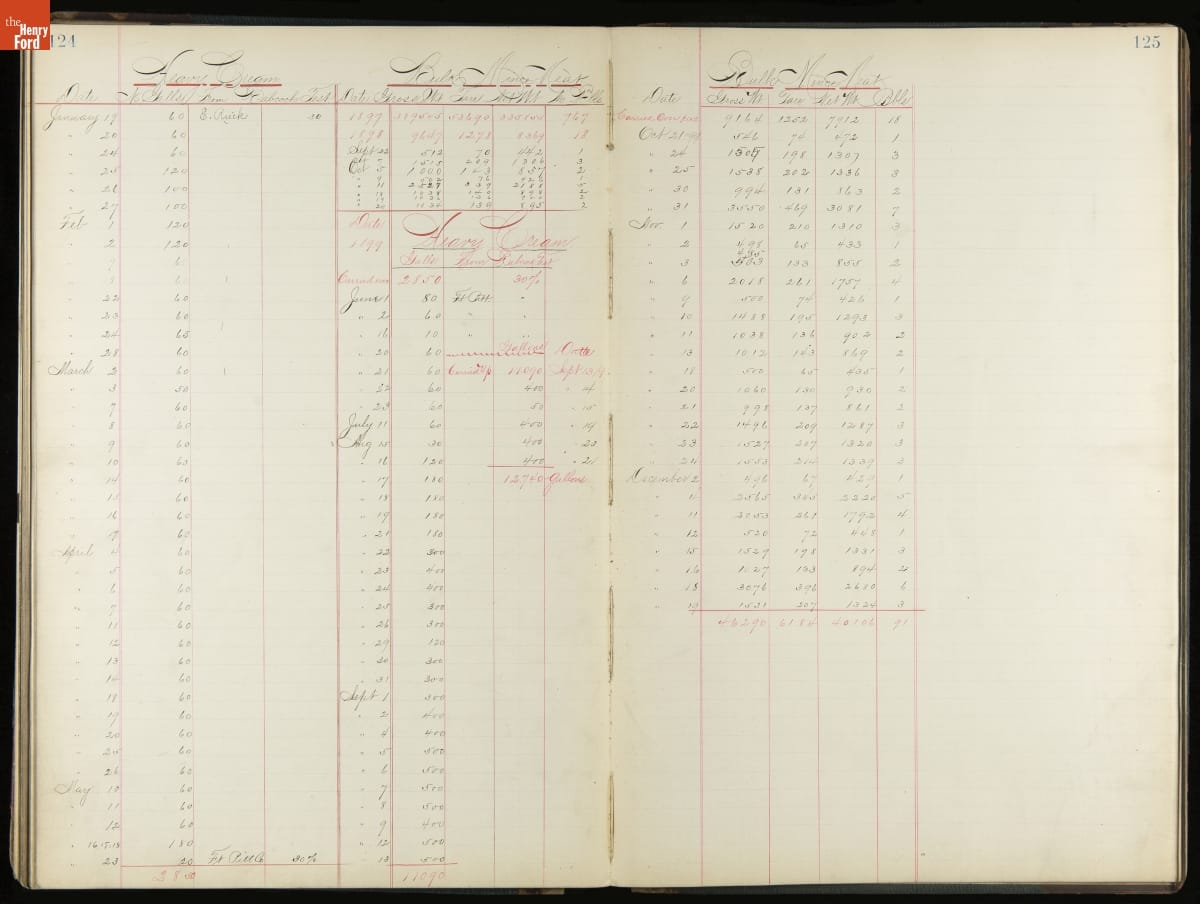 the
Henry
Ford
124
Heavy Cream
Date
From
Babcock Test
January 19 60 E. Rick 30
" 20 60
" 24 60
" 25 120
" 26 100
" 27 100
Feb 1 120
" 2 120
" 8 60
" 22 60
" 23 60
" 24 65
" 28 60
March 2 60
" 3 50
" 7 60
" 8 60
" 9 60
" 10 60
" 14 60
" 15 60
" 16 60
60
April 4 60
" 5 60
" 6 60
" 7 60
" 11 60
" 12 60
" 13 60
" 14 60
" 18 60
" 19 60
" 20 60
" 25 60
" 26 60
May 10 60
" 11 60
" 12 60
" 16 17 18 180
" 23 20 Ft Pitt Co 30%
2850
Bulk Mince Meat
Date Gross Wt Tare Net Wt
1897 767
1898 9647 1278 8369 18
Sept 22 512 70 442 1
1515 209 1306 3
Oct 5 1000 143 857 2
" 20 1034 139 895 2
Date
1899
Heavy Cream
Galls From Babcock Test
2850 30%
June 1 80 Ft Pitt "
" 2 60 " "
" 16 10 " "
" 20 60 Gallons Date
" 21 60 Carried Up 11090 Sept 13/99
" 22 60 400 " 14
" 23 60 50 " 15
July 11 60 400 " 19
Aug 15 30 400 " 20
" 16 120 400 " 21
" 17 180 12,740 Gallons
" 18 180
" 19 180
" 21 180
" 22 300
" 23 400
" 24 400
" 25 300
" 26 300
" 29 120
" 30 300
" 31 300
Sept 1 300
" 2 400
" 4 400
" 5 500
" 6 500
" 7 500
" 8 500
" 9 400
" 12 500
" 13 500
11090
125
Bulk Mince Meat
Date Gross Wt Tare Net Wt Bbls
Carried Over 9164 1252 7912 18
Oct 21 546 74 472 1
" 24 1505 198 1307 3
" 25 1538 202 1336 3
" 30 994 131 863 2
" 31 3550 469 3081 7
Nov. 1 1520 210 1310 3
" 2 498 65 433 1
" 3 133 855 2
" 6 2018 261 1757 4
" 9 500 74 426 1
" 10 1488 195 1293 3
" 11 1038 136 902 2
" 13 1012 143 869 2
" 18 500 65 435 1
" 20 1060 130 930 2
" 21 998 137 861 2
" 22 1496 209 1287 3
" 23 1527 207 1320 3
" 24 1553 214 1339 3
December 2 496 67 429 1
" 2565 345 2220 5
" 11 2053 261 1792 4
" 12 520 72 448 1
" 15 1529 198 1331 3
" 16 1027 133 894 2
" 18 3076 396 2680 6
" 19 1531 207 1324 3
46290 6184 40106 91